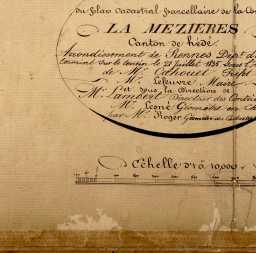 du plan cadastral parcellaire de la Co
LA MEZIERES
Canton de hédé
Arrondissement de Rennes Dept d
terminé sur le terrain le 21 juillet 1835 sous l
de Mr. Cahouet Préfet
Mr. Lefeuvre Maire
et sous la direction de
Mr. Lambert Directeur des Contrib
Mr. Leoné Géomètre en
par Mr. Roger Géomètre du Cadastre
Échelle d'1 à 10,000